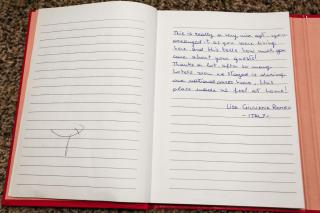 This is really a very nice apt. you
arranged it as you were living
here and this tells how much you
care about your guests!
Thanks a lot, after so many
hotels room we stayed in during
our national parks travel, this
place made us feel at home!
Lisa Giuliana
- ITALY -